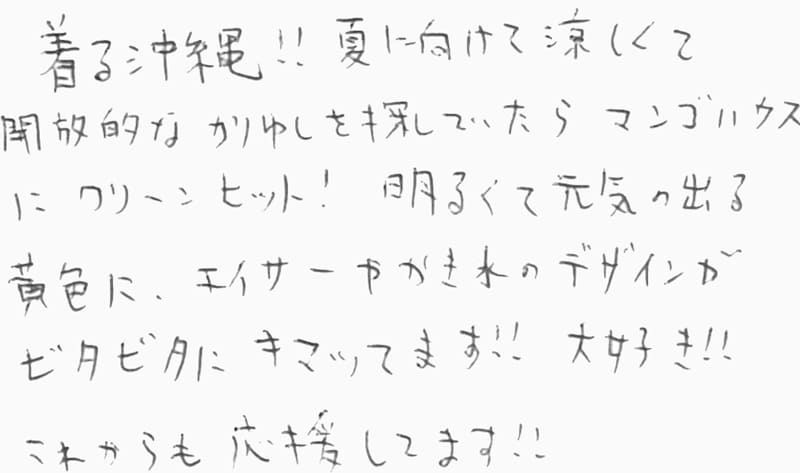 着る沖縄!! 夏に向けて涼しくて
開放的なかりゆしを探していたら マンゴハウス
に クリーンヒット! 明るくて元気の出る
黄色に、エイサーやかき氷のデザインが
ビタビタに キマッてます!! 大好き!!
これからも応援してます!!